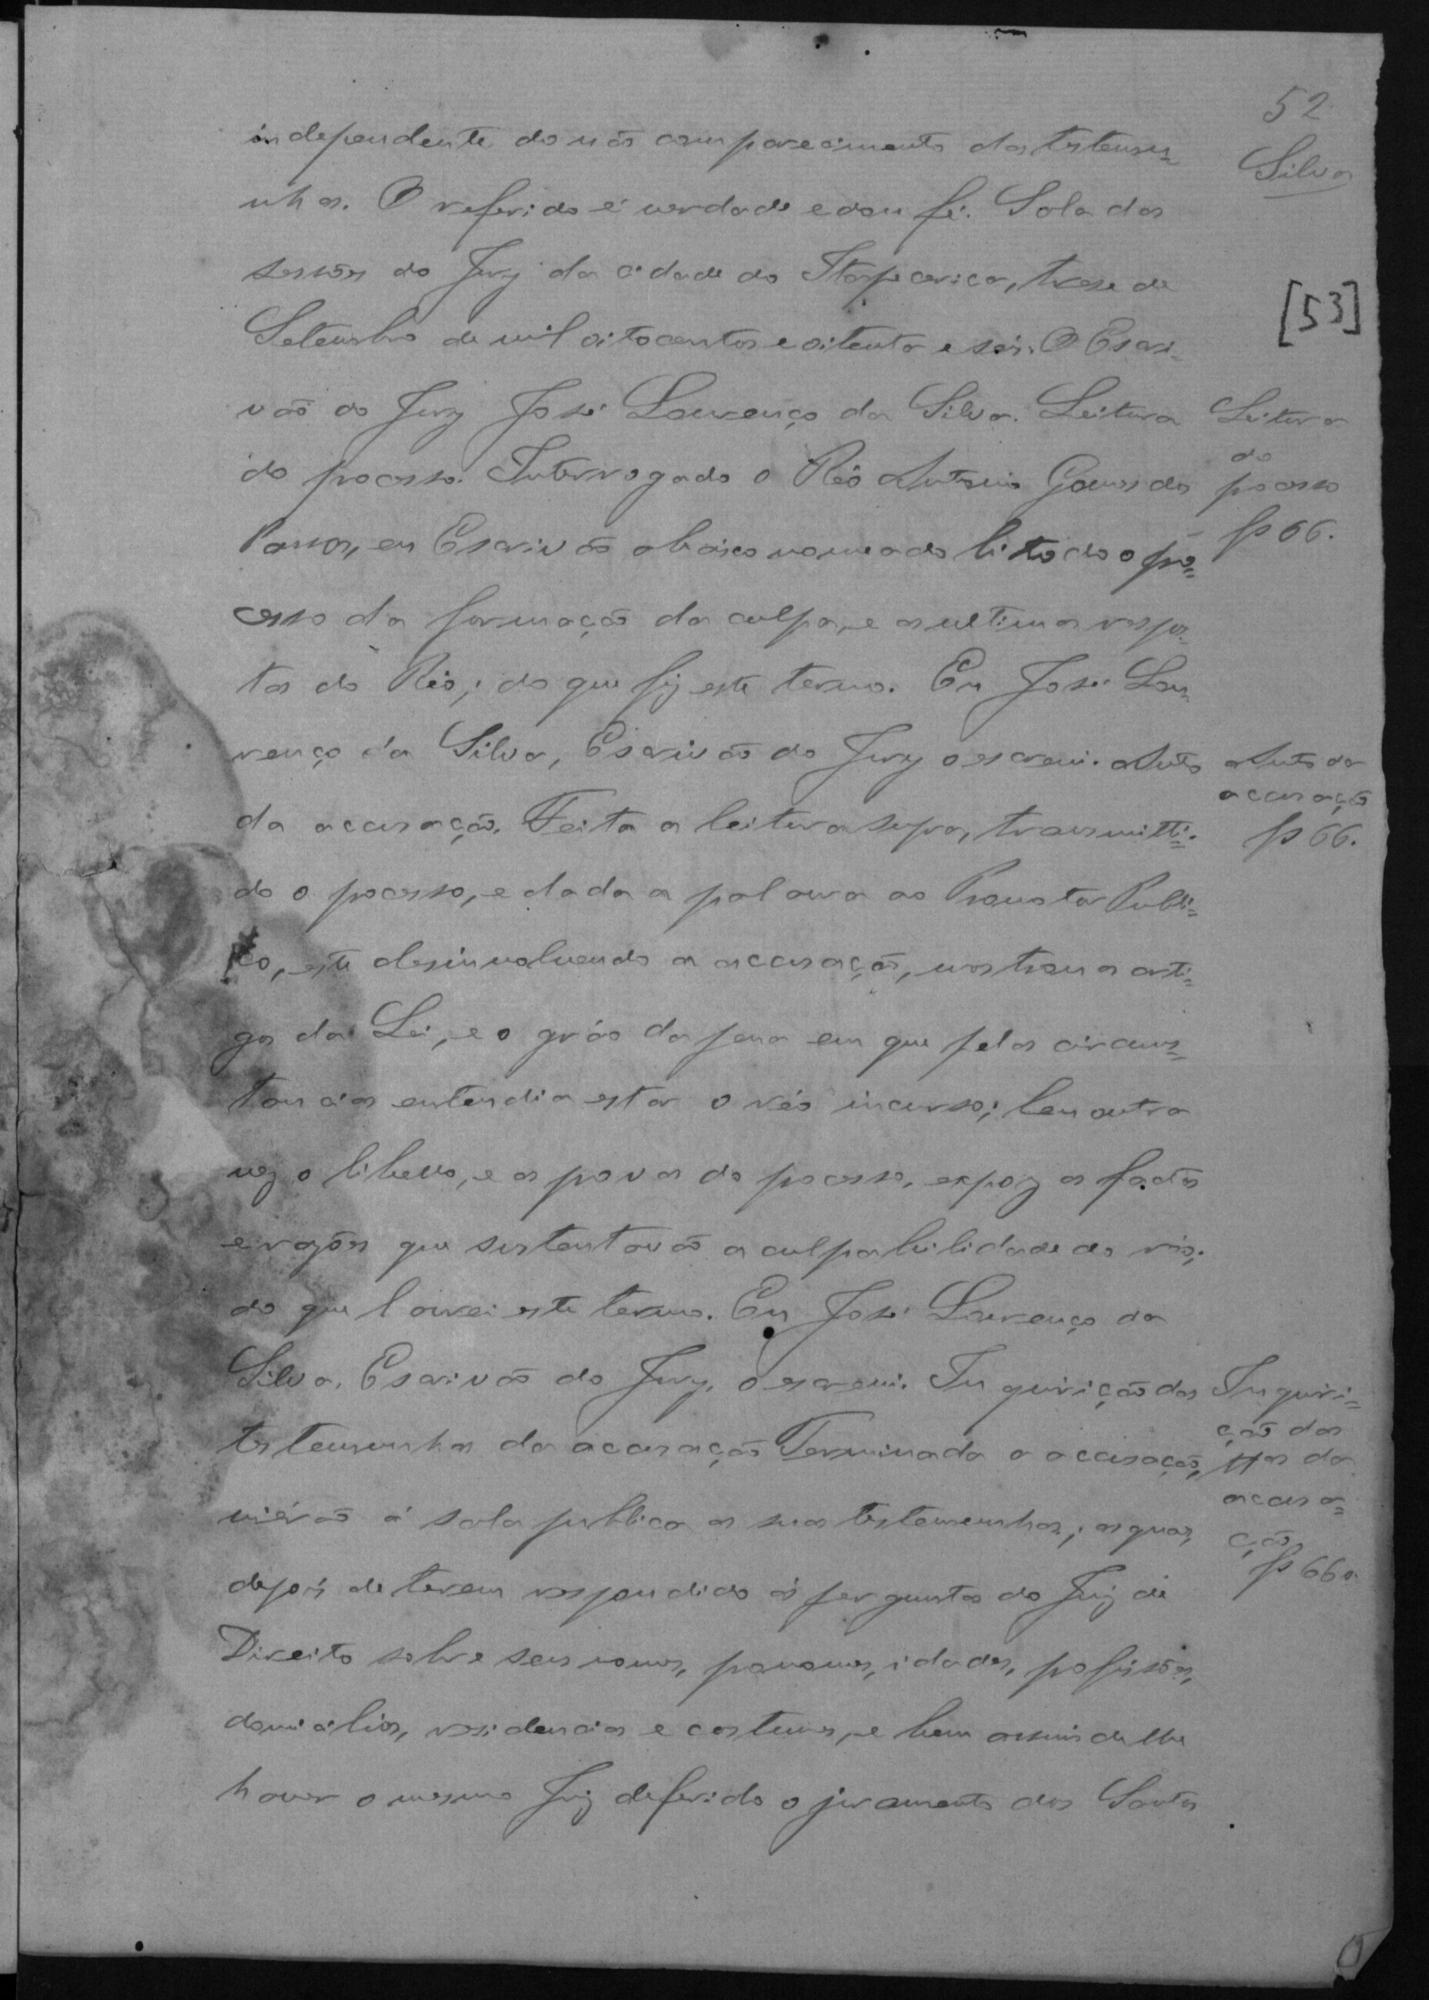 52
Silva
independente do não comparecimento das testemu=
nhas. O referido é verdade e dou fé. Sala das
sessões do Jury da cidade do Itapecerica, treze de
Setembro de mil oitocentos e oitenta e seis. O Escri=
vão do Jury José Lourenço da Silva. Leitura
do processo. Interrogado o Réo Antonio Gomes dos
Passos, eu Escrivão abaixo nomeado li todo o pro=
cesso da formação da culpa, e as ultimas respos=
tas do Réo; do que fiz este termo. Eu José Lou=
renço da Silva, Escrivão do Jury o escrevi. Auto
da accusação. Feita a leitura supra, transmitti=
do o processo, e dada a palavra ao Promotor Publi=
co, este desinvolvendo a accusação, mostrou os arti=
gos da Lei, e o gráo da pena em que pelas circums=
tancias entendia estar o réo incurso; leu outra
vez o libello, e as provas do processo, expoz os factos
e razões que sustentavão a culpabilidade do réo;
do que lavrei este termo. Eu José Lourenço da
Silva, Escrivão do Jury, o escrevi. Inquirição das
testemunhas da accusação Terminada a accusação,
vierão á sala publica as suas testemunhas; as quaes,
depois de terem respondido ás perguntas do Juiz de
Direito sobre seus nomes, pronomes, idades, profissões,
domicilios, residencias e costumes, e bem assim de lhe
haver o mesmo Juiz deferido o juramento dos Santos
[53]
Leitura
do
processo
fs 66.
Auto da
accusação
fs 66.
Inquiri=
ção das
ttas da
accusa=
ção
fs 66v.